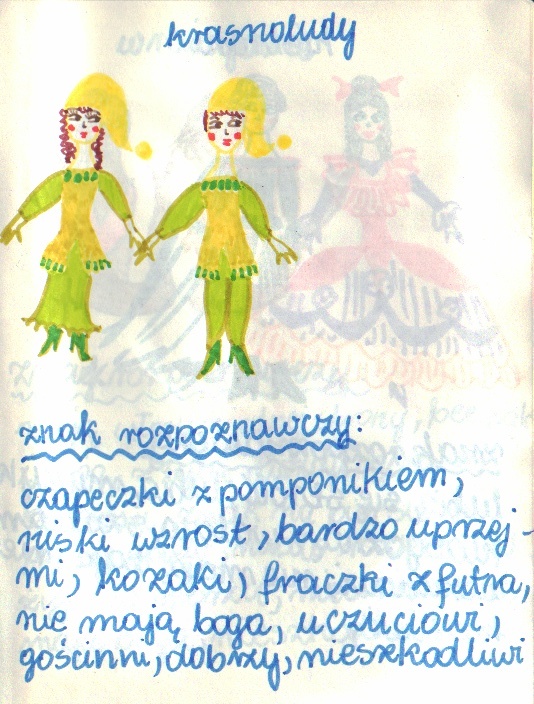 krasnoludy
znak rozpoznawczy:
czapeczki z pomponikiem,
niski wzrost, bardzo uprzej-
mi, kozaki, fraczki z futra,
nie mają boga, uczuciowi,
gościnni, dobrzy, nieszkodliwi